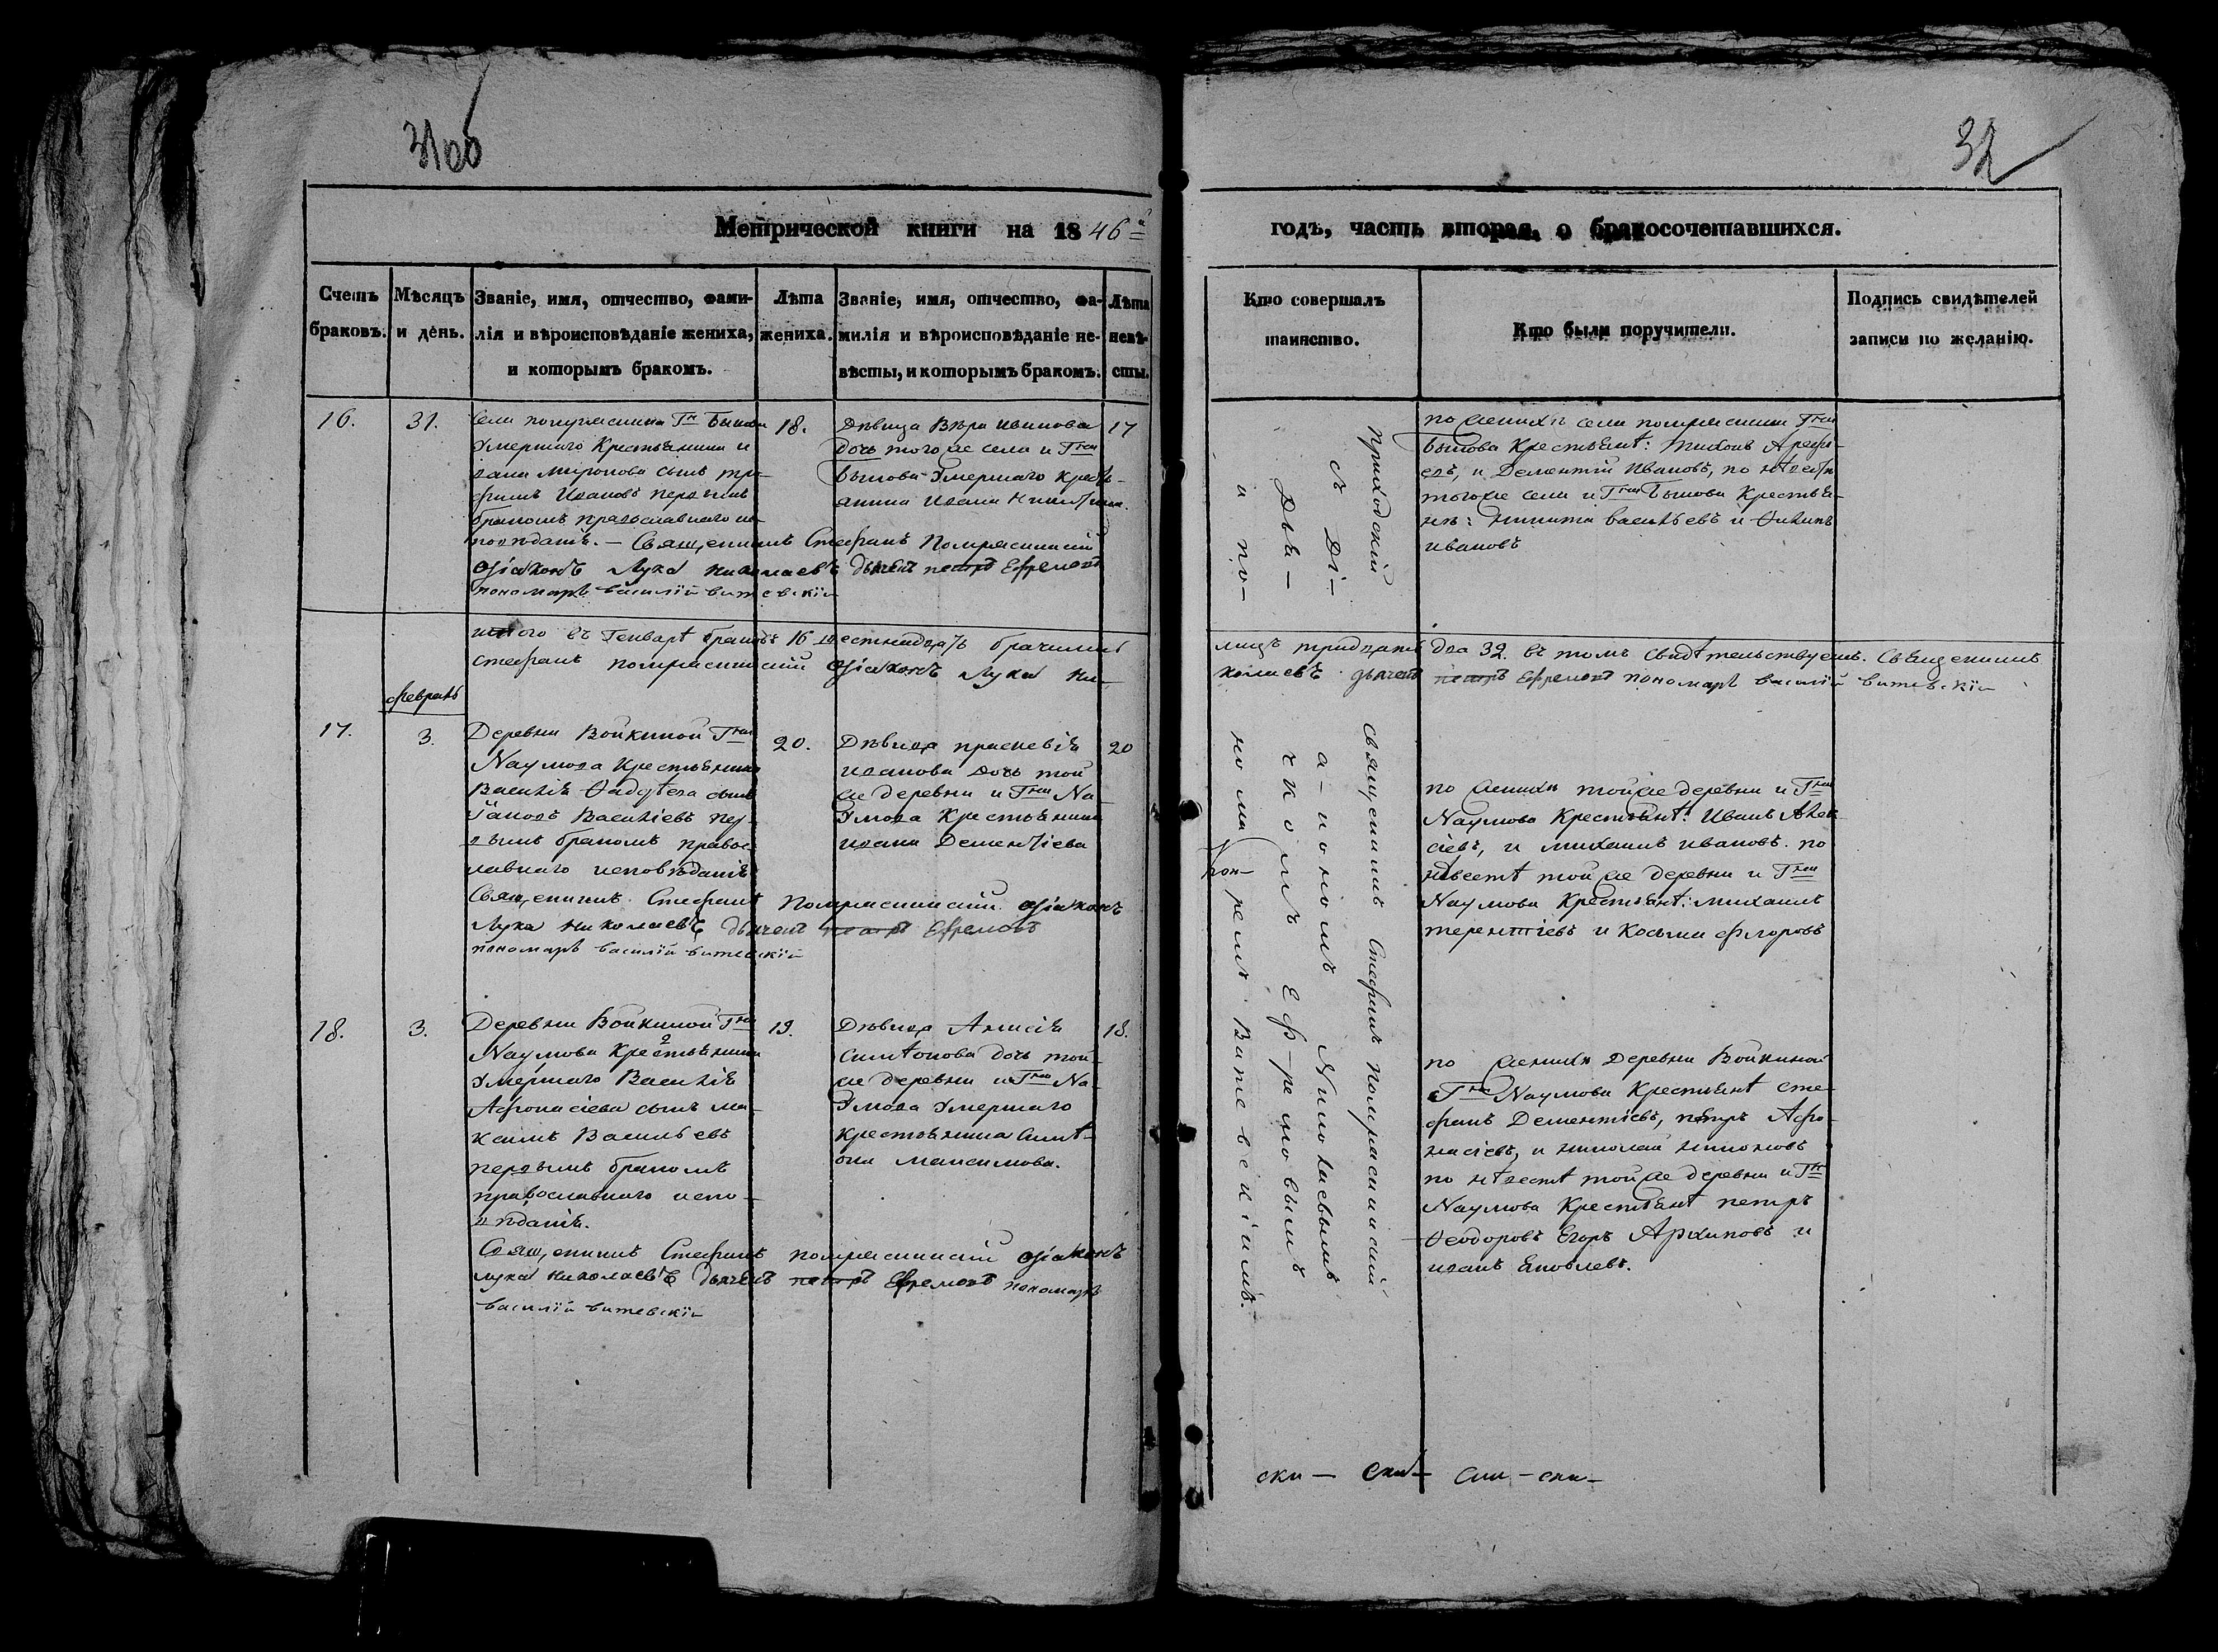 31об
32
Метрической книги на 1846й
годъ, часть вторая, о бракосочетавшихся.
Счетъ браковъ.
Мѣсяцъ и день.
Званіе, имя, отчество, фами-
лія и вѣроисповѣданіе жениха,
и которымъ бракомъ.
Лѣта жениха.
Званіе, имя, отчество, фа-
милія и вѣроисповѣданіе не-
вѣсты, и которымъ бракомъ.
Лѣта невѣ-
сты.
Кто совершалъ
таинство.
Кто были поручители.
Подпись свидѣтелей
записи по желанію.
16.
31.
Села Гна
умершаго Крестьянина И
вана Миронова сынъ Тро-
фимъ Ивановъ первымъ
бракомъ православнаго ис-
повѣданія. — Священникъ Стефанъ
Діаконъ Лука Николаевъ дьячекъ Петръ Ефремовъ
пономарь Василій Витевскій
18.
Дѣвица Вѣра Иванова
дочь того же села и Гна
умершаго кресть-
янина Ивана
17
по женихѣ села Гна
Крестьянѣ: Тихонъ Арефі-
евъ, и Дементій Ивановъ, по невѣстѣ
того же села и Гна Крестья-
нѣ: Никита Васильевъ и
Ивановъ
приходскій
съ Ді-
Дья-
и по-
итого въ Генварѣ браковъ 16 шестнадцать брачившихся
Стефанъ Діаконъ Лука Ни-
лицъ тридцать два 32. въ томъ свидѣтельствуемъ. Священникъ
колаевъ дьячекъ Петръ Ефремовъ пономарь Василій Витевскій
Февраль
17.
3.
Деревни Войкиной Гна
Наумова Крестьянина
Василія Фадѣева сынъ
Іаковъ Васильевъ пер-
вымъ бракомъ правос-
лавнаго исповѣданія
Священникъ Стефанъ Діаконъ
Лука Николаевъ дьячекъ Петръ Ефремовъ
пономарь Василій Витевскій
20.
Дѣвица Праскевія
Иванова дочь той
же деревни и Гна На-
умова Крестьянина
Ивана Дементіева
20
Священникъ Стефанъ
а-кономъ Николаевымъ
чкомъ Еф-ремовымъ
но ма
ремъ Витевскіимъ.
по женихѣ той же деревни и Гна
Наумова Крестьянѣ: Иванъ Алек-
сіевъ, и Михаилъ Ивановъ. по
невѣстѣ той же деревни и Гна
Наумова Крестьянѣ: Михаилъ
Терентіевъ и Косьма Флоровъ
18.
3.
Деревни Войкиной Гна
Наумова Крестьянина
умершаго Василія
Афонасіева сынъ Ма-
ксимъ Васильевъ
первымъ бракомъ
православнаго испо-
вѣданія.
Священникъ Стефанъ Діаконъ
Лука Николаевъ дьячекъ Петръ Ефремовъ пономарь
Василій Витевскій
19.
Дѣвица Анисія
Симѣонова дочь той
же деревни и Гна На-
умова умершаго
Крестьянина Симѣ-
она Максимова.
18.
по женихѣ Деревни Войкиной
Гна Наумова Крестьянѣ Сте-
фанъ Дементіевъ, Петръ Афо-
насіевъ, и Николай Никоновъ
по невѣстѣ той же деревни и Гна
Наумова Крестьянѣ Петръ
Феодоровъ Егоръ Архиповъ и
Иванъ Яковлевъ.